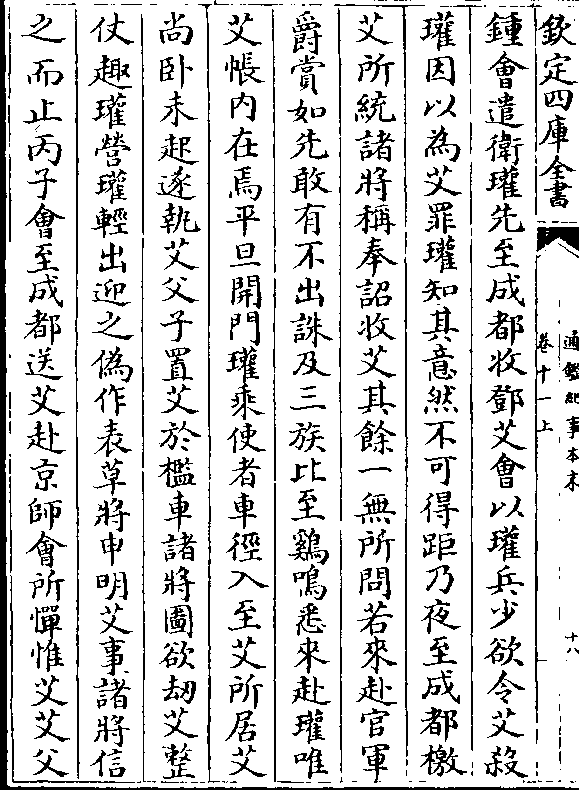 欽定四庫全書
通鑑紀事本末
卷十一上
十八
鍾會遣衛瓘先至成都收鄧艾會以瓘兵少欲令艾殺
瓘因以為艾罪瓘知其意然不可得距乃夜至成都檄
艾所統諸將稱奉詔收艾其餘一無所問若來赴官軍
爵賞如先敢有不出誅及三族比至鷄鳴悉來赴瓘唯
艾帳内在焉平旦開門瓘乘使者車徑入至艾所居艾
尚卧未起遂執艾父子置艾於檻車諸將圖欲劫艾整
仗趣瓘營瓘輕出迎之偽作表草將申明艾事諸將信
之而止丙子會至成都送艾赴京師會所憚惟艾艾父